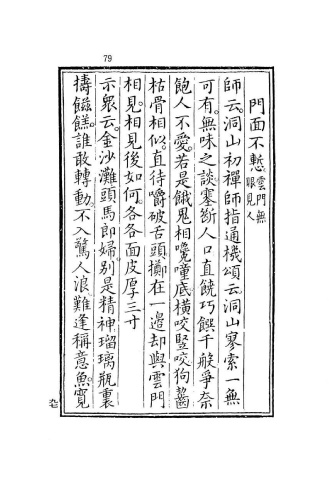 79
門面不慙。雲門無
眼見人
師云。洞山初禪師指通機頌云。洞山寥索一無
可有。無味之談塞斷人口直饒巧饌千般爭奈
飽人不愛。若是餓鬼相嚵噇底橫咬豎咬狗齧
枯骨相似。直待嚼破舌頭。擲在一邊却與雲門
相見相見後如何。各各面皮厚三寸
示眾云。金沙灘頭馬郎婦。別是精神瑠璃瓶裏
擣餻誰敢轉動。不入驚人浪難逢稱意魚。寬
九七